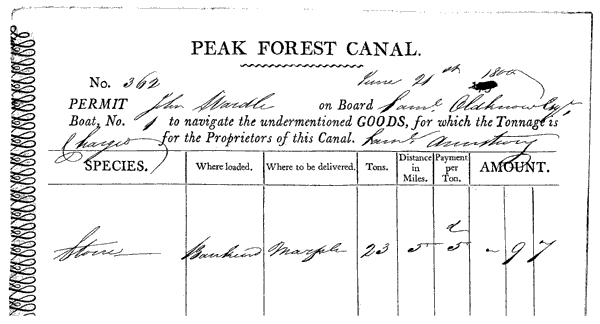 PEAK FOREST CANAL.
No. 362 June 21st 1800
PERMIT John Wardle on Board Saml. Oldknow Esqr.
Boat, No. 1 to navigate the undermentioned GOODS, for which the Tonnage is
Charged for the Proprietors of this Canal. Saml. Armstrong
SPECIES. Where loaded. Where to be delivered. Tons. Distance in Miles. Payment per Ton. AMOUNT.
d
Stone Marple 23 5 5 - 9 7